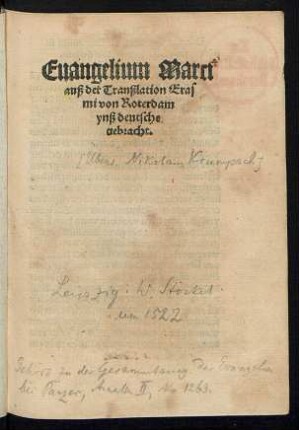 Euangelium Marci
auß der Translation Eras
mi von Roterdam
ynß deutsche
gebracht.
(Übers. Nikolaus Krumpach)
Leipzig: W. Stöckel
um 1522
Gehört zu der Gesammtausg. der Evangelien
bei Panzer, Annalen II, No 1263.